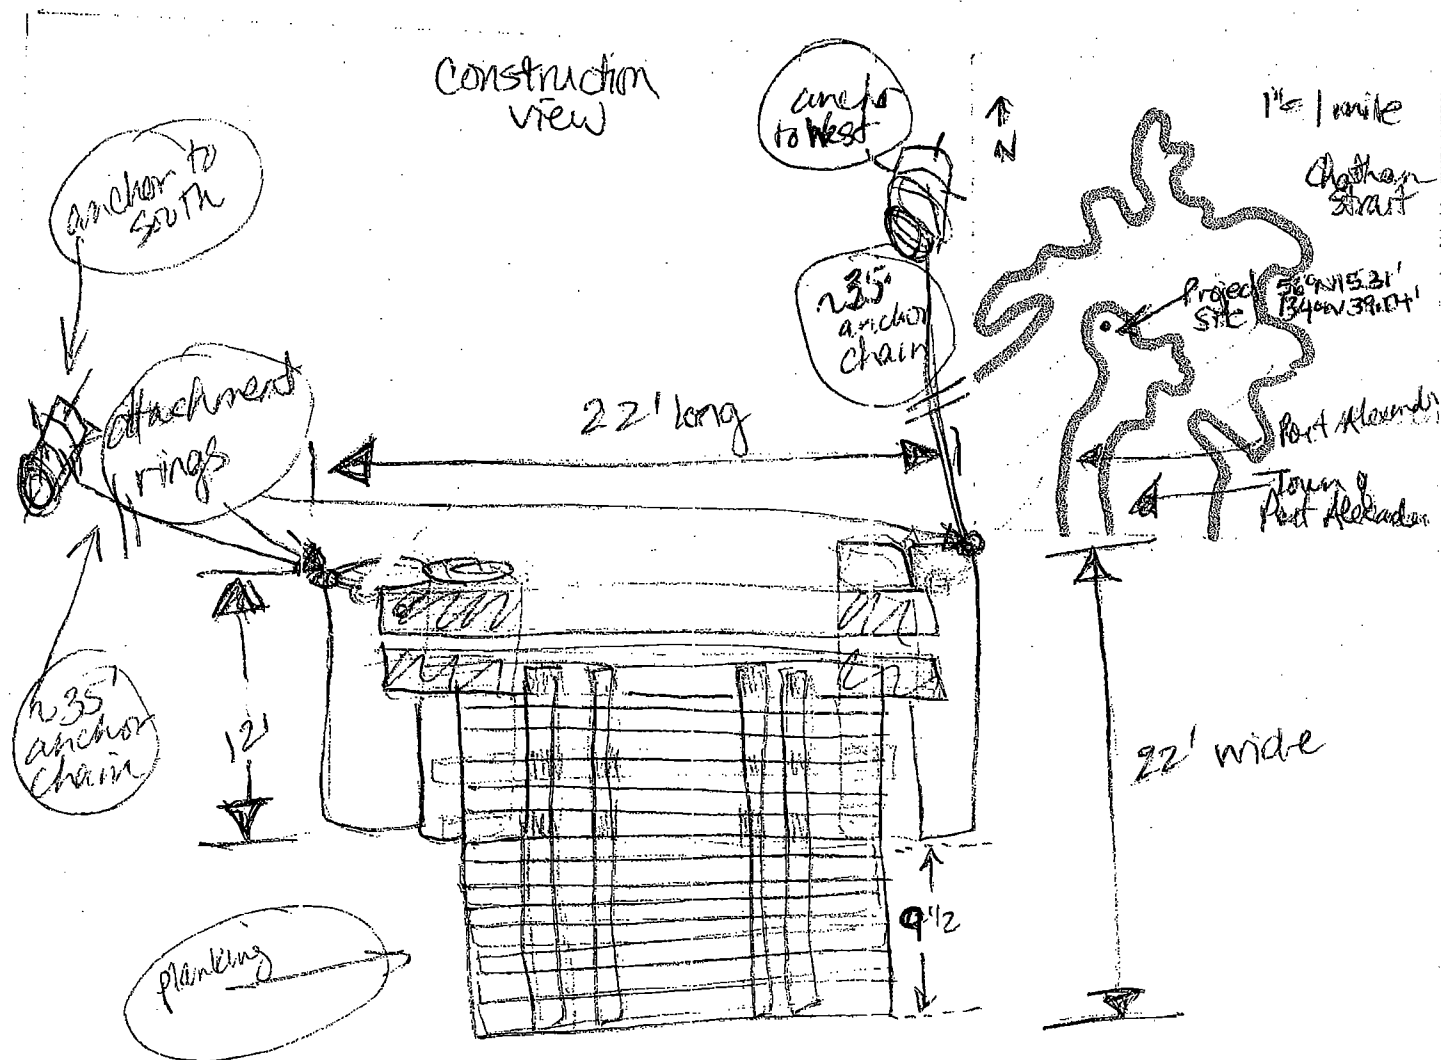 Construction
view
anchor to
south
anchor
to West
↑
N
1"= 1 mile
Chatham
Strait
~35'
anchor
chain
Project
Site
attachment
rings
22' long
Port Alexander
Town of
Port Alexander
~35'
anchor
chain
12'
22' wide
9 1/2
planking